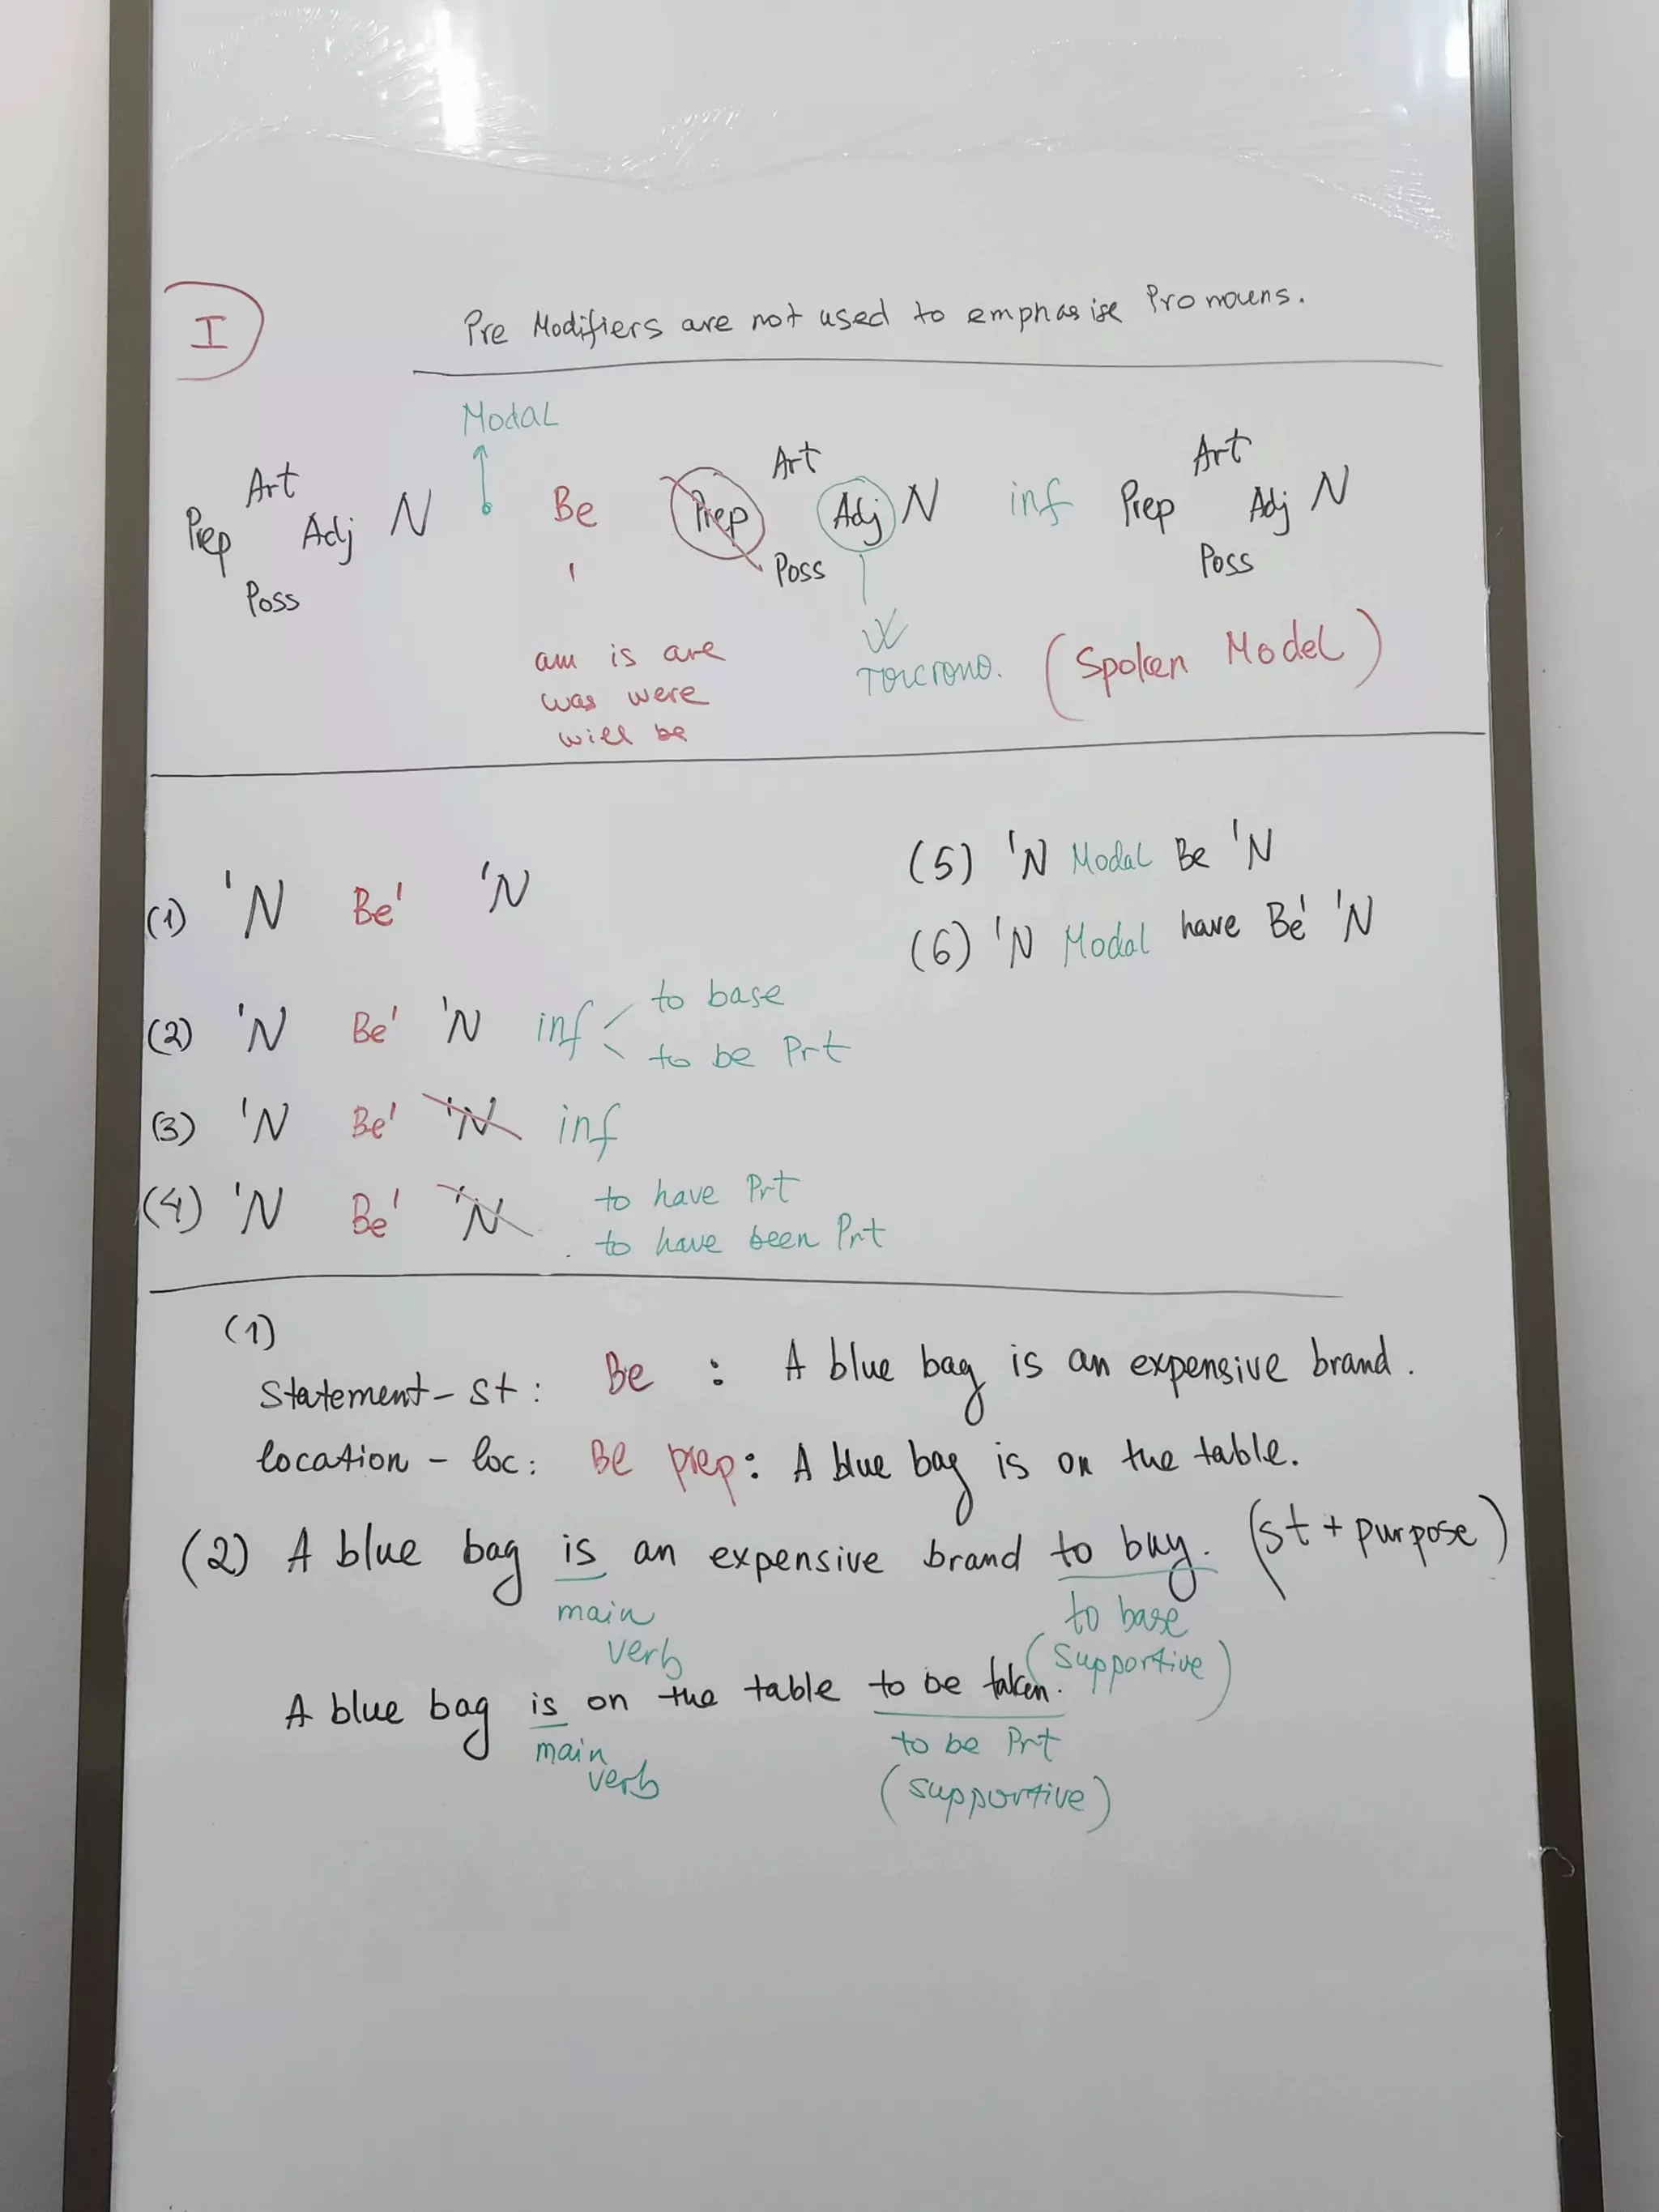 I
Pre Modifiers are not used to emphasise Pronouns.
Modal
Prep Art Poss Adj N Be Prep Art Poss Adj N inf Prep Art Poss Adj N
am is are
was were
will be
(Spoken Model)
(1) 'N Be' 'N
(2) 'N Be' 'N inf to base
to be Prt
(3) 'N Be' 'N inf
(4) 'N Be' 'N to have Prt
to have been Prt
(5) 'N Modal Be 'N
(6) 'N Modal have Be' 'N
(1)
Statement - st: Be : A blue bag is an expensive brand.
location - loc: Be prep: A blue bag is on the table.
(2) A blue bag is an expensive brand to buy. (st + purpose)
main verb
to base
(supportive)
A blue bag is on the table to be taken.
main verb
to be Prt
(supportive)